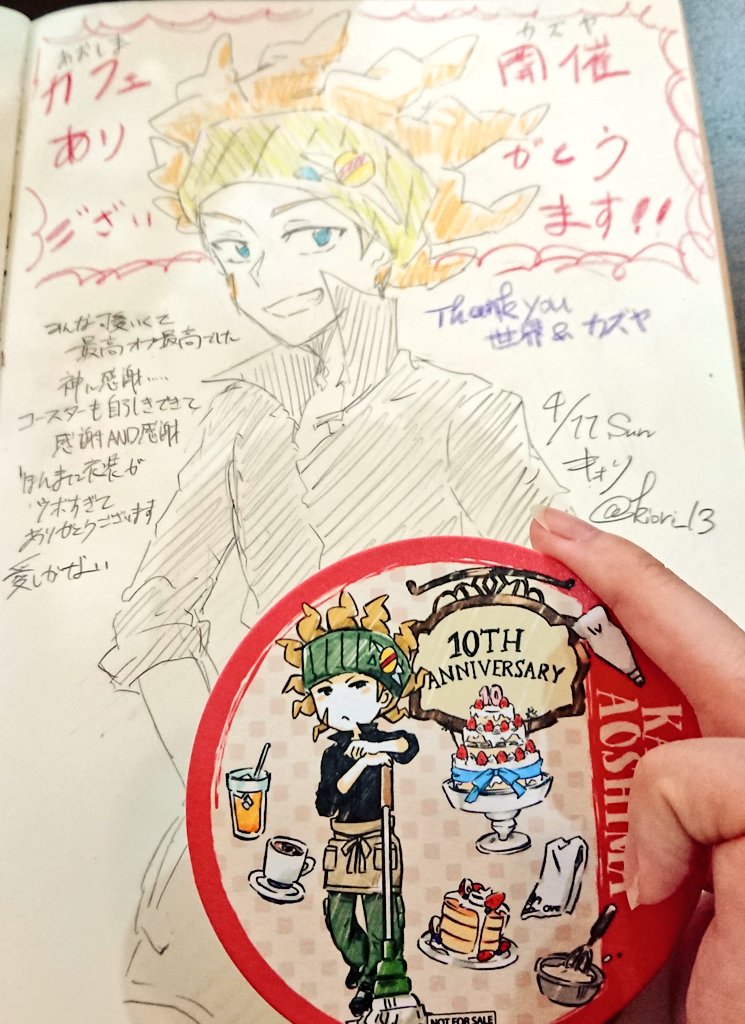 あおしま カズヤ
カフェ 開催
あり がとう
ござい ます!!
みんな可愛いくて
最高オブ最高でした
神に感謝……
コースターも自引きできて
感謝AND感謝
ほんまに衣装が
ツボすぎて
ありがとうございます
愛しかない
Thank you
世界& カズヤ
4/17 Sun
きおり
@kiori_13
10TH
ANNIVERSARY
10
AOSHIMA
CAFE
NOT FOR SALE